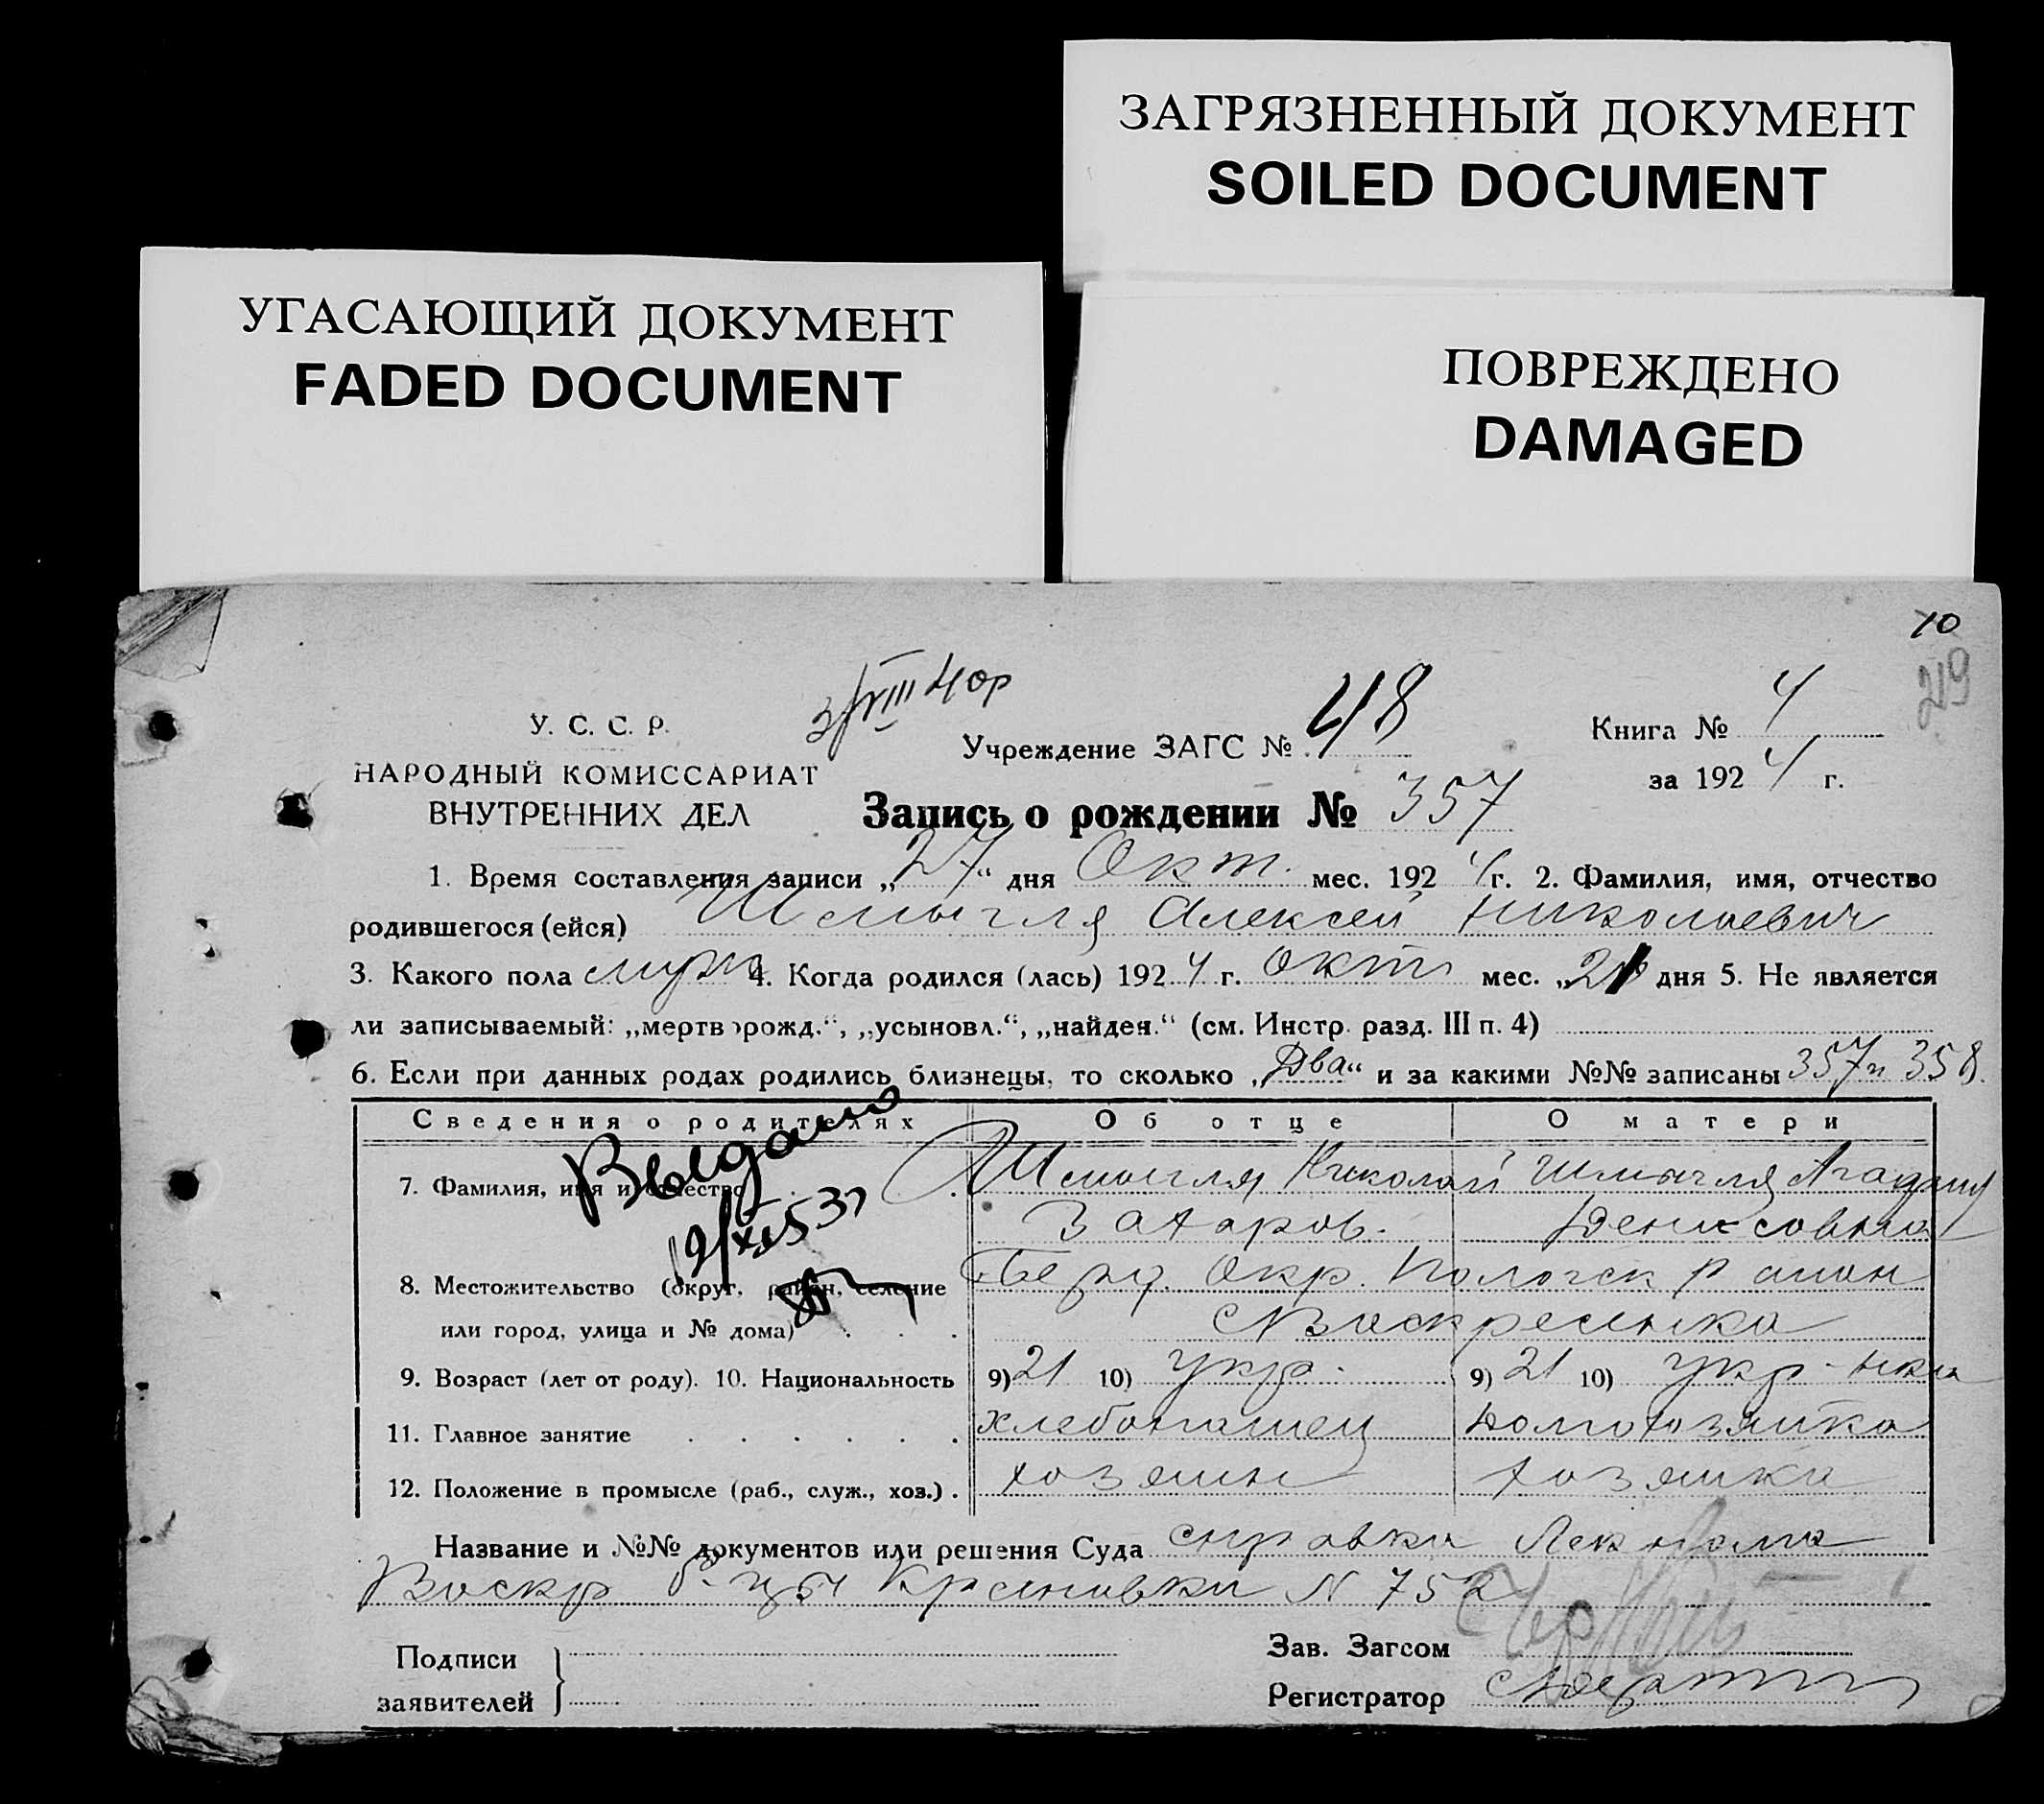 ЗАГРЯЗНЕННЫЙ ДОКУМЕНТ
SOILED DOCUMENT
УГАСАЮЩИЙ ДОКУМЕНТ
FADED DOCUMENT
ПОВРЕЖДЕНО
DAMAGED
10
219
У. С. С. Р.
НАРОДНЫЙ КОМИССАРИАТ
ВНУТРЕННИХ ДЕЛ
Учреждение ЗАГС № 48
Книга № 4
за 1924 г.
Запись о рождении № 357
1. Время составления записи „27“ дня Окт. мес. 1924 г. 2. Фамилия, имя, отчество
родившегося (ейся) Шмыгля Алексей Николаевич
3. Какого пола муж 4. Когда родился (лась) 1924 г. Окт мес. „21 дня 5. Не является
ли записываемый: „мертворожд.“, „усыновл.“, „найден.“ (см. Инстр. разд. III п. 4)
6. Если при данных родах родились близнецы, то сколько „Два“ и за какими №№ записаны 357 и 358.
Сведения о родителях Об отце О матери
Выдано
7. Фамилия, имя и отчество Шмыгля Николай Шмыгля
Захаров. Денисовна
8. Местожительство (округ, район, селение Берд. Окр. Пологск район
или город, улица и № дома) с Воскресенка
9. Возраст (лет от роду). 10. Национальность 9) 21 10) укр. 9) 21 10) укр-нка
11. Главное занятие хлебопашец домохозяйка
12. Положение в промысле (раб., служ., хоз.) хозяин хозяйка
Название и №№ документов или решения Суда справка Лекпома
Воскр б-цы N 752
Подписи
заявителей
Зав. Загсом
Регистратор